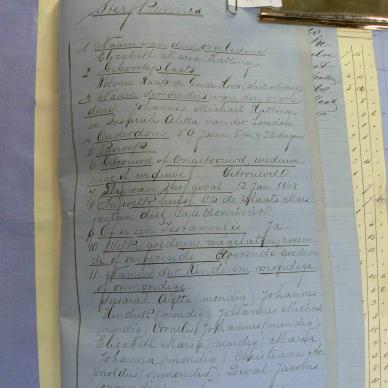 Sterf Kennis
1 Naam van den overledene
Elizabeth Maria Hatting
2 Geboorteplaats
Kolonie Kaap de Goede Hoop
3 Naam der ouders van den overle-
dene Johannes Michael Hatting
en Susarah Aletta van der Linden
4 Ouderdom 50 jaren 5 m x 20 dagen
5 Beroep
6 Getrouwd of Ongetrouwd, weduwe-
naar of weduwe Getrouwd
7 Dag van sterfgeval 12 Jan 1868
8 In welk huis Op de plaats
fontein dist
9 Of er een Testament is Ja
10 Welk goederen nagelaten, roeren-
de of onroerende Roerende Goederen
11 Namen der Kinderen, mondige
of onmondige
Susarah Aletta (mondig) Johannes
Hendrik (mondig) Johannes Michael
(mondig) Cornelis Johannes (mondig)
Elizabeth Maria (mondig) Maria
Johanna (mondig) Christiaan Ar-
noldus (onmondig) Jacobus